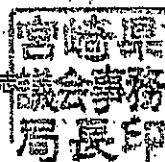 宮崎県
議会事務
局長印